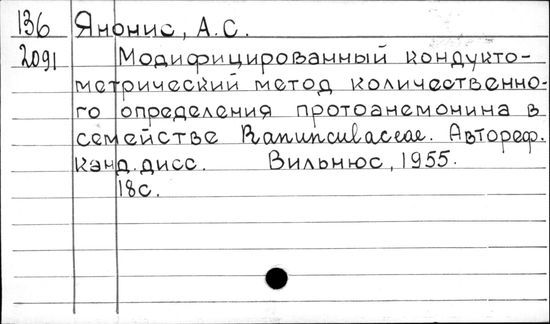 136 Янонис, А.С.
2091 Модифицированный кондукто-
метрический метод количественно-
го определения протоанемонина в
семействе Ranunculaceae. Автореф.
канд. дисс. Вильнюс, 1955.
18с.